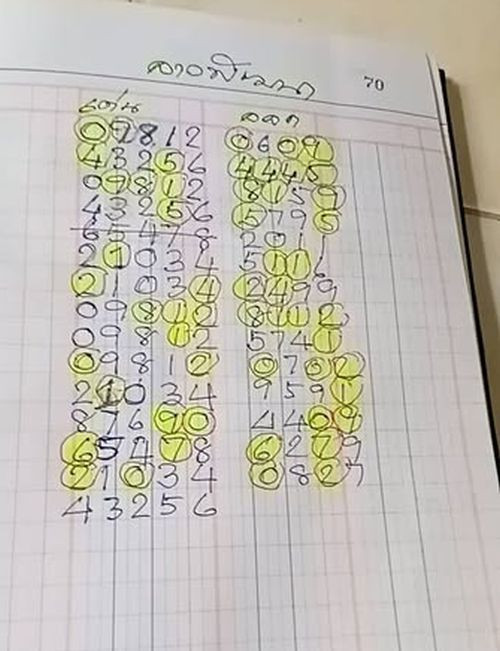 ลาวพัฒนา 70
เด่น ออก
09812 0609
43256 4445
09812 8159
43256 5795
65478 201
21034 5111
21034 2499
09812 8112
09812 5741
09812 0702
21034 9591
87690 4409
65478 6279
21034 0827
43256